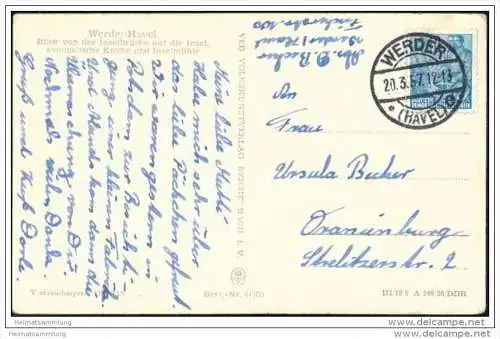 Werder/Havel
Blick von der Inselbrücke auf die Insel,
evangelische Kirche und Inselmühle
Meine liebe Mutti!
Habe mich sehr über
das liebe Päckchen gefreut.
Wir waren gestern in
Potsdam zur Besichti-
gung einer kleinen Fabrik.
Und Abends kam dann die
von Dir.
Nochmals vielen Dank.
Gruß und Kuß Dorle.
VEB VOLKSKUNSTVERLAG REICHENBACH I. V.
Best.-Nr.
Abs. D. Becher
Werder/Havel
WERDER
20.3.57.12-13
(HAVEL)
An
Frau
Ursula Becher
Oranienburg
Strelitzerstr. 2
III/18 6 A 246/56/DDR
Heimatsammlung
www.heimatsammlung.de